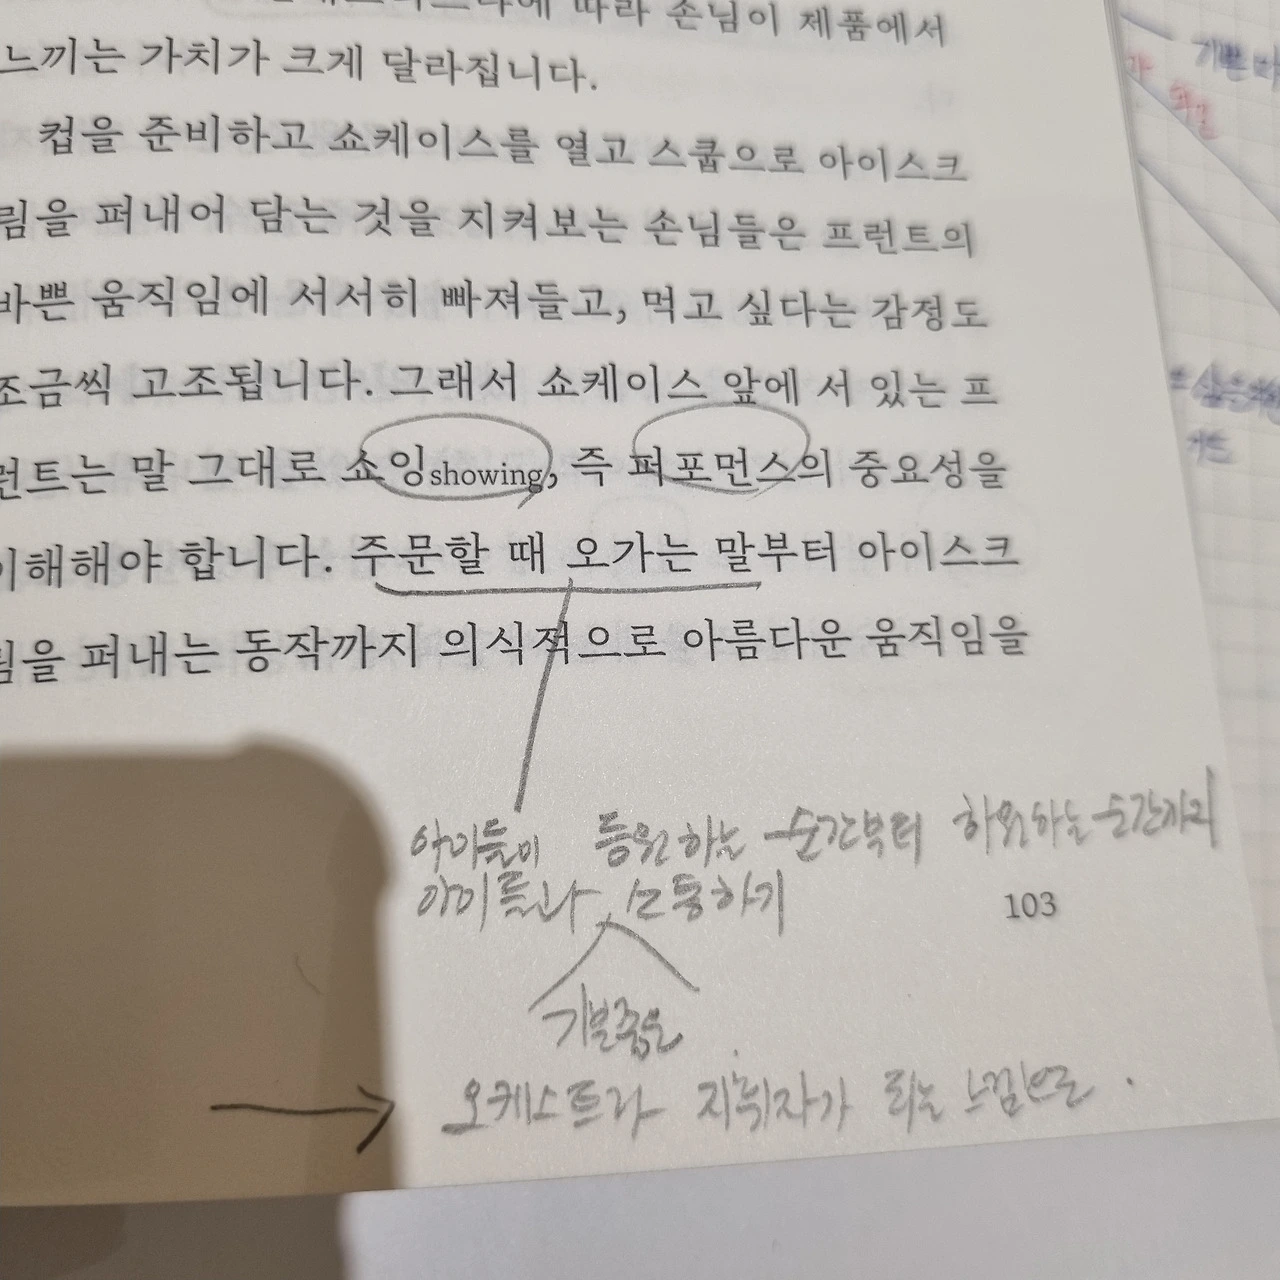 따라 손님이 제품에서
느끼는 가치가 크게 달라집니다.
컵을 준비하고 쇼케이스를 열고 스쿱으로 아이스크
림을 퍼내어 담는 것을 지켜보는 손님들은 프런트의
바쁜 움직임에 서서히 빠져들고, 먹고 싶다는 감정도
조금씩 고조됩니다. 그래서 쇼케이스 앞에 서 있는 프
런트는 말 그대로 쇼잉showing, 즉 퍼포먼스의 중요성을
이해해야 합니다. 주문할 때 오가는 말부터 아이스크
림을 퍼내는 동작까지 의식적으로 아름다운 움직임을
아이들이 등원하는 순간부터 하원하는 순간까지
아이들과 소통하기
103
기분좋은
오케스트라 지휘자가 되는 느낌으로.